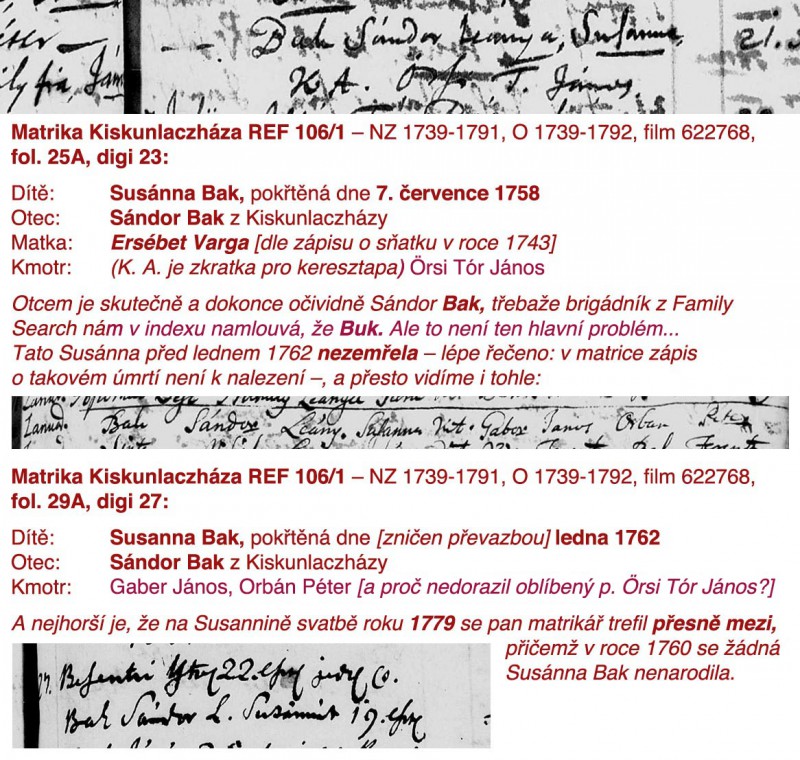 Bak Sándor leánya, Susánna, 21.
K A. Örsi T. János.
Matrika Kiskunlaczháza REF 106/1 – NZ 1739-1791, O 1739-1792, film 622768,
fol. 25A, digi 23:
Dítě: Susánna Bak, pokřtěná dne 7. července 1758
Otec: Sándor Bak z Kiskunlaczházy
Matka: Ersébet Varga [dle zápisu o sňatku v roce 1743]
Kmotr: (K. A. je zkratka pro keresztapa) Örsi Tór János
Otcem je skutečně a dokonce očividně Sándor Bak, třebaže brigádník z Family
Search nám v indexu namlouvá, že Buk. Ale to není ten hlavní problém...
Tato Susánna před lednem 1762 nezemřela – lépe řečeno: v matrice zápis
o takovém úmrtí není k nalezení –, a přesto vidíme i tohle:
Bak Sándor Leány. Susanna Gaber Janos Orban Peter
Matrika Kiskunlaczháza REF 106/1 – NZ 1739-1791, O 1739-1792, film 622768,
fol. 29A, digi 27:
Dítě: Susanna Bak, pokřtěná dne [zničen převazbou] ledna 1762
Otec: Sándor Bak z Kiskunlaczházy
Kmotr: Gaber János, Orbán Péter [a proč nedorazil oblíbený p. Örsi Tór János?]
A nejhorší je, že na Susannině svatbě roku 1779 se pan matrikář trefil přesně mezi,
přičemž v roce 1760 se žádná
Susánna Bak nenarodila.
22.
Bak Sándor L. Susánnát 19.